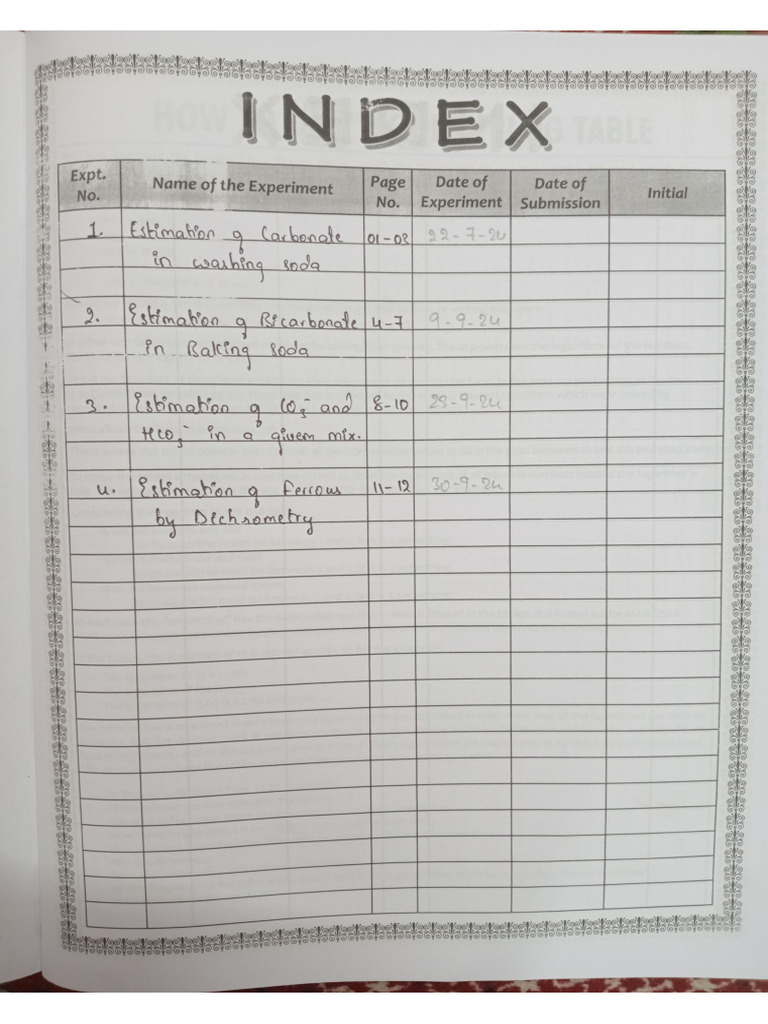 INDEX
Expt. No. Name of the Experiment Page No. Date of Experiment Date of Submission Initial
1. Estimation of Carbonate 01-03 22-7-24
in washing soda
2. Estimation of Bicarbonate 4-7 9-9-24
in Baking soda
3. Estimation of CO₃⁻ and 8-10 23-9-24
HCO₃⁻ in a given mix.
4. Estimation of Ferrous 11-12 30-9-24
by Dichrometry